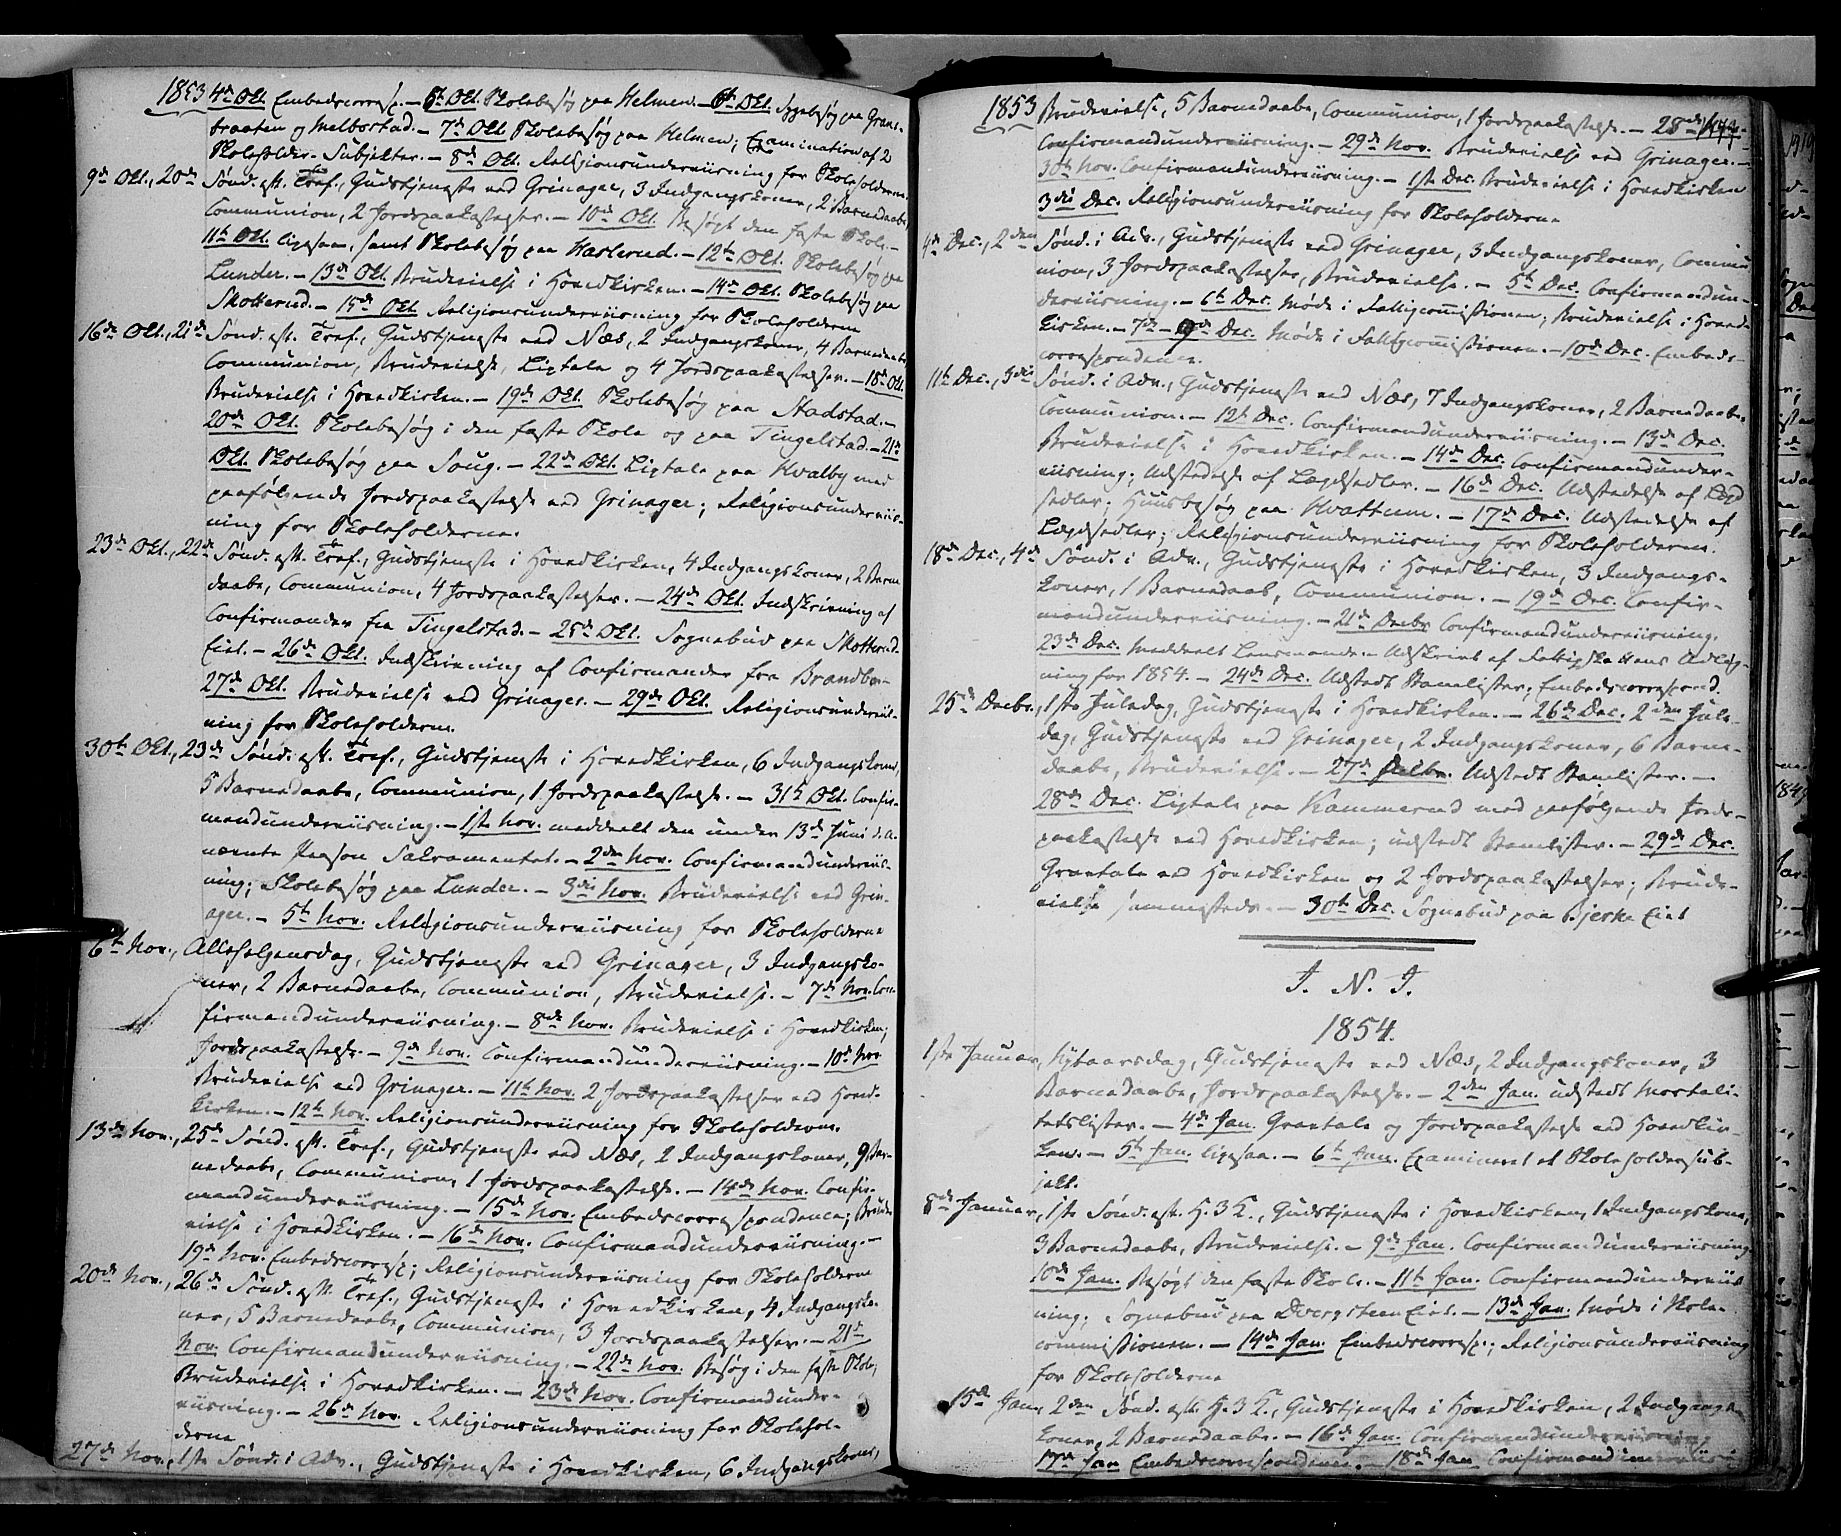 1853 4de Okt. Embedscorresp. — 5te Okt. Skolebesøg paa Helmen. — 6te Okt. Sygebesøg paa Grans-
braaten og Melbostad. — 7de Okt. Skolebesøg paa Helmen; Examination af 2
Skoleholder-Subjekter. — 8de Okt. Religionsunderviisning for Skoleholderne
9de Okt., 20de Sønd. eft. Tref., Gudstjeneste ved Grinager, 3 Indgangskoner, 2 Barnedaabe,
Communion, 2 Jordspaakastelser. — 10de Okt. Besøgt den faste Skole. —
11te Okt. ligesaa, samt Skolebesøg paa Haslerud. — 12te Okt. Skolebesøg paa
Lunder. — 13de Okt. Brudevielse i Hovedkirken. — 14de Okt. Skolebesøg paa
Skotterud. — 15de Okt. Religionsunderviisning for Skoleholderne
16de Okt., 21de Sønd. eft. Tref., Gudstjeneste ved Næs, 2 Indgangskoner, 4 Barnedaabe,
Communion, Brudevielse, Ligtale og 4 Jordspaakastelser. — 18de Okt.
Brudevielse i Hovedkirken. — 19de Okt. Skolebesøg paa Stadstad. —
20de Okt. Skolebesøg i den faste Skole og paa Tingelstad. — 21de
Okt. Skolebesøg paa Soug. — 22de Okt. Ligtale paa Hvalby med
paafølgende Jordspaakastelse ved Grinager; Religionsunderviis-
ning for Skoleholderne.
23de Okt., 22de Sønd. eft. Tref., Gudstjeneste i Hovedkirken, 4 Indgangskoner, 2 Barne
daabe, Communion, 4 Jordspaakastelser. — 24de Okt. Indskrivning af
Confirmander fra Tingelstad. — 25de Okt. Sognebud paa Skotterud
Eiet. — 26de Okt. Indskrivning af Confirmander fra Brandbu. —
27de Okt. Brudevielse ved Grinager. — 29de Okt. Religionsunderviis-
ning for Skoleholderne.
30te Okt., 23de Sønd. eft. Tref., Gudstjeneste i Hovedkirken, 6 Indgangskoner,
5 Barnedaabe, Communion, 1 Jordspaakastelse. — 31te Okt. Confir-
mandunderviisning. — 1ste Nov. meddeelt den under 13de Juni d. A.
nævnte Person Sakramentet. — 2den Nov. Confirmandunderviis-
ning; Skolebesøg paa Lunder. — 3die Nov. Brudevielse ved Grin-
ager. — 5te Nov. Religionsunderviisning for Skoleholderne
6te Nov., Allehelgensdag, Gudstjeneste ved Grinager, 3 Indgangsko-
ner, 2 Barnedaabe, Communion, Brudevielse. — 7de Nov. Con-
firmandunderviisning. — 8de Nov. Brudevielse i Hovedkirken;
Jordspaakastelse. — 9de Nov. Confirmandunderviisning. — 10de Nov
Brudevielse ved Grinager. — 11te Nov. 2 Jordspaakastelser ved Hoved-
kirken. — 12te Nov. Religionsunderviisning for Skoleholderne.
13de Nov., 25de Sønd. eft. Tref., Gudstjeneste ved Næs, 2 Indgangskoner, 9 Bar-
nedaabe, Communion, 1 Jordspaakastelse. — 14de Nov. Confir-
mandunderviisning. — 15de Nov. Embedscorrespondence; Brude
vielse i Hovedkirken. — 16de Nov. Confirmandunderviisning. —
19de Nov. Embedscorresp.; Religionsunderviisning for Skoleholderne
20de Nov., 26de Sønd. eft. Tref., Gudstjeneste i Hovedkirken, 4 Indgangsko-
ner, 5 Barnedaabe, Communion, 3 Jordspaakastelser. — 21de
Nov. Confirmandunderviisning. — 22de Nov. Besøg i den faste Skole,
Brudevielse i Hovedkirken. — 23de Nov. Confirmandunder-
viisning. — 26de Nov. Religionsunderviisning for Skolehol-
derne
27de Nov., 1ste Sønd. i Adv., Gudstjeneste i Hovedkirken, 6 Indgangskoner,
1853 Brudevielse, 5 Barnedaabe, Communion, 1 Jordspaakastelse. — 28de Nov.
Confirmandunderviisning. — 29de Nov. Brudevielse ved Grinager. —
30te Nov. Confirmandunderviisning. — 1ste Dec. Brudevielse i Hovedkirken
3die Dec. Religionsunderviisning for Skoleholderne
4de Dec., 2den Sønd. i Adv., Gudstjeneste ved Grinager, 3 Indgangskoner, Commu
nion, 3 Jordspaakastelser, Brudevielse. — 5te Dec. Confirmandun-
derviisning. — 6te Dec. Møde i Fattigcommissionen; Brudevielse i Hoved-
kirken. — 7de – 9de Dec. Møde i Fattigcommissionen. — 10de Dec. Embeds-
correspondence.
11te Dec., 3die Sønd. i Adv., Gudstjeneste ved Næs, 7 Indgangskoner, 2 Barnedaabe,
Communion. — 12te Dec. Confirmandunderviisning. — 13de Dec.
Brudevielse i Hovedkirken. — 14de Dec. Confirmandunder-
viisning; Udstedelse af Lægdsedler. — 16de Dec. Udstedelse af Lægd
sedler; Huusbesøg paa Hvattum. — 17de Dec. Udstedelse af
Lægdsedler; Religionsunderviisning for Skoleholderne.
18de Dec., 4de Sønd. i Adv., Gudstjeneste i Hovedkirken, 3 Indgangs-
koner, 1 Barnedaab, Communion. — 19de Dec. Confir-
mandunderviisning. — 21de Decbr. Confirmandunderviisning.
23de Dec. meddeelt Lensmanden Udskrivt af Fattigskattens Udlig-
ning for 1854. — 24de Dec. Udstedt Manelister; Embedscorrespond.
25de Decbr., 1ste Juledag, Gudstjeneste i Hovedkirken. — 26de Dec. 2den Jule-
dag, Gudstjeneste ved Grinager, 2 Indgangskoner, 6 Barne-
daabe, Brudevielse. — 27de Decbr. Udstedt Manelister. —
28de Dec. Ligtale paa Kammerud med paafølgende Jords-
paakastelse ved Hovedkirken; udstedt Manelister. — 29de Dec.
Gravtale ved Hovedkirken og 2 Jordspaakastelser; Brude-
vielse sammesteds. — 30te Dec. Sognebud paa Bjerke Eiet
J. N. J.
1854.
1ste Januar, Nytaarsdag, Gudstjeneste ved Næs, 2 Indgangskoner, 3
Barnedaabe, Jordspaakastelse. — 2den Jan. udstedt Mortali-
tetslister. — 4de Jan. Gravtale og Jordspaakastelse ved Hovedkir-
ken. — 5te Jan. ligesaa. — 6te Jan. Examineret et Skoleholdersub-
jekt.
8de Januar, 1ste Sønd. eft. H. 3 K., Gudstjeneste i Hovedkirken, 1 Indgangskone,
3 Barnedaabe, Brudevielse. — 9de Jan. Confirmandunderviisning.
10de Jan. Besøgt den faste Skole. — 11te Jan. Confirmandunderviis
ning; Sognebud paa Dvergsteen Eiet. — 13de Jan. Møde i Skole-
commissionen. — 14de Jan. Embedscorresp.; Religionsunderviisning
for Skoleholderne
15de Jan. 2den Sønd. eft. H. 3 K., Gudstjeneste i Hovedkirken, 2 Indgangs
koner, 2 Barnedaabe. — 16de Jan. Confirmandunderviisning
17de Jan Embedscorrespondence. — 18de Jan. Confirmandunderviisn